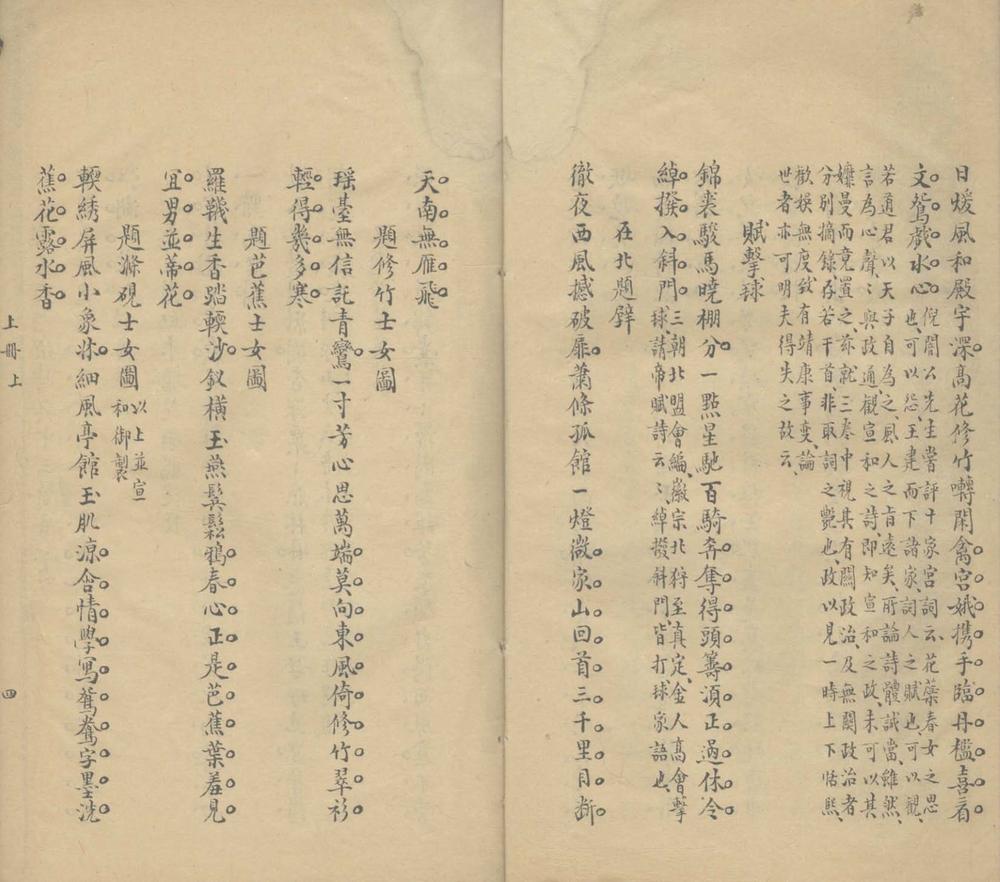 日煖風和殿宇深高花修竹囀閑禽宮娥携手臨丹檻喜看
文鴛戲水心倪誾公先生嘗評十家宮詞云花蘂春女之思
也可以怨王建而下諸家詞人之賦也可以觀
若道君以天子自為之風人之旨遠矣所論詩體誠當雖然
言為心聲〻與政通觀宣和之詩即知宣和之政未可以其
孊曼而竟置之茲就三奏中視其有關政治及無關政治者
分別摘錄存若干首非取詞之艷也政以見一時上下恬熙
歡娛無度致有靖康事変論
世者亦可明夫得失之故云
賦擊毬
錦裘駿馬曉棚分一點星馳百騎奔奪得頭籌須正過休令
綽撥入斜門三朝北盟會編徽宗北狩至真定金人高會擊
球請帝賦詩云〻綽撥斜門皆打球家語也
在北題壁
徹夜西風撼破扉蕭條孤館一燈微家山回首三千里目斷
天南無雁飛
題修竹士女圖
瑶臺無信託青鸞一寸芳心思萬端莫向東風倚修竹翠衫
輕得幾多寒
題芭蕉士女圖
羅韈生香踏輭沙釵橫玉燕鬂鬆鴉春心正是芭蕉葉羞見
宜男並蒂花
題滌硯士女圖以上並宣
和御製
輭綉屏風小象牀細風亭館玉肌涼含情學寫鴛鴦字墨洗
蕉花露水香
上冊上
四